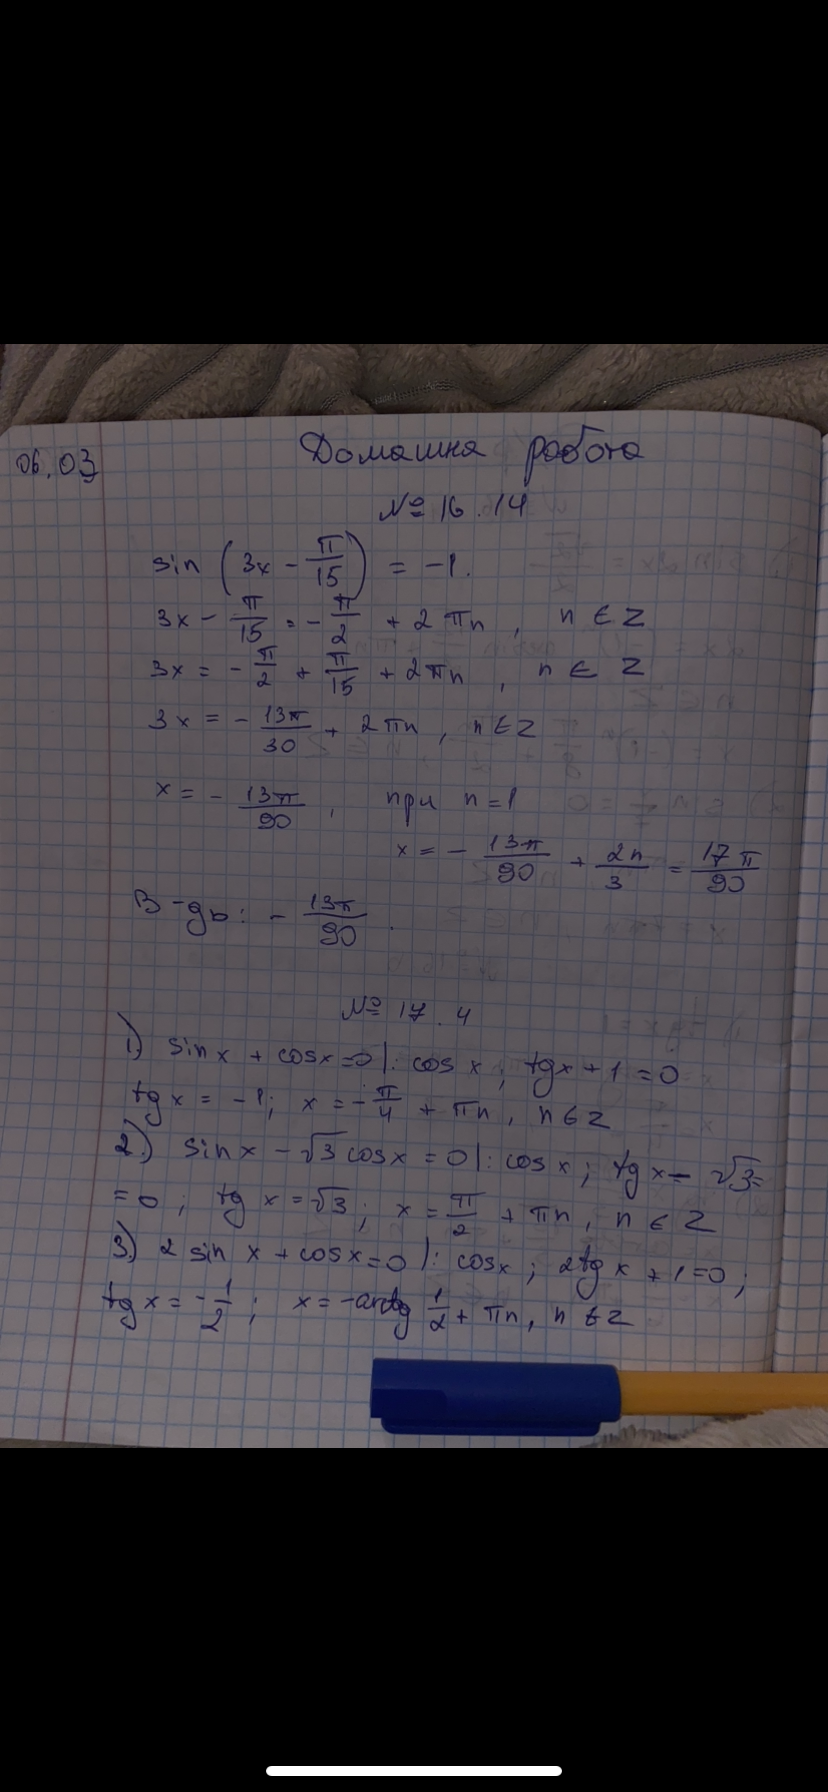 06.03
Домашня робота
№ 16.14
sin (3x - π/15) = -1.
3x - π/15 = - π/2 + 2πn, n ∈ Z
3x = - π/2 + π/15 + 2πn, n ∈ Z
3x = - 13π/30 + 2πn, n ∈ Z
x = - 13π/90, при n=1
x = - 13π/90 + 2π/3 = 17π/90
В-дь: - 13π/90.
№ 17.4
1) sin x + cos x = 0 |: cos x; tg x + 1 = 0
tg x = -1; x = - π/4 + πn, n ∈ Z
2) sin x - √3 cos x = 0 |: cos x; tg x - √3 =
= 0; tg x = √3; x = π/2 + πn, n ∈ Z
3) 2 sin x + cos x = 0 |: cos x; 2tg x + 1 = 0;
tg x = - 1/2; x = - arctg 1/2 + πn, n ∈ Z